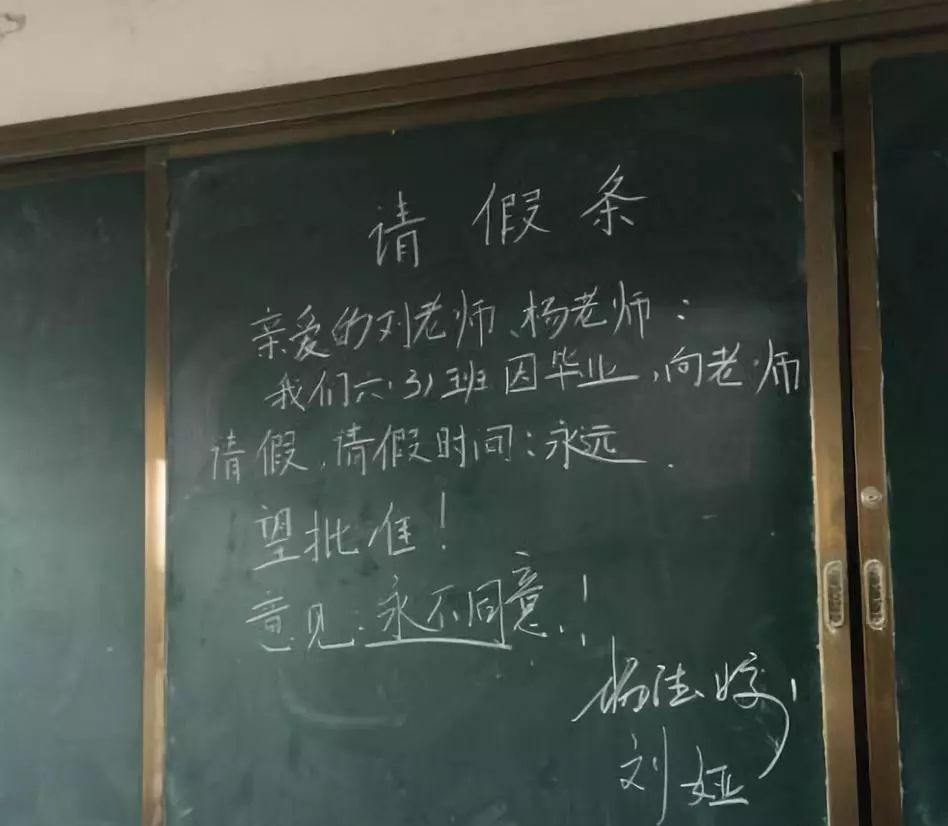 请假条
亲爱的刘老师、杨老师：
我们六(3)班因毕业,向老师
请假,请假时间:永远.
望批准！
意见:永不同意!!
刘娅